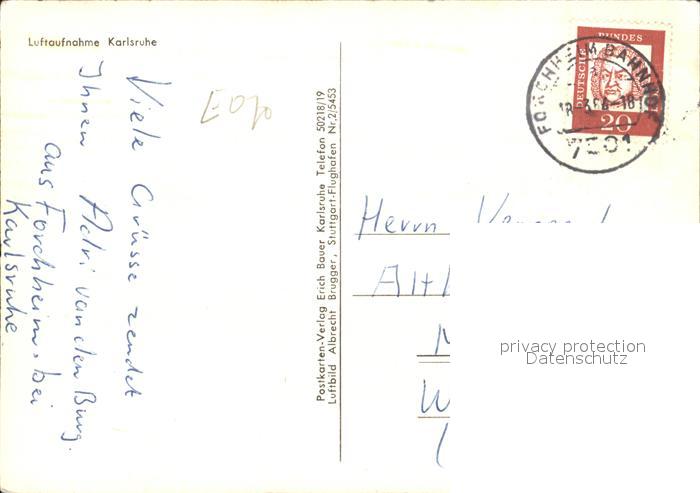 Luftaufnahme Karlsruhe
Viele Grüsse zendet
Ihnen Adri van den Burg.
aus Forchheim. bei
Karlsruhe.
Postkarten-Verlag Erich Bauer Karlsruhe Telefon 50218/19
Luftbild Albrecht Brugger, Stuttgart-Flughafen Nr. 2/5453
DEUTSCHE BUNDES
20
FORCHHEIM BAHNHOF
7501
Herrn
privacy protection
Datenschutz